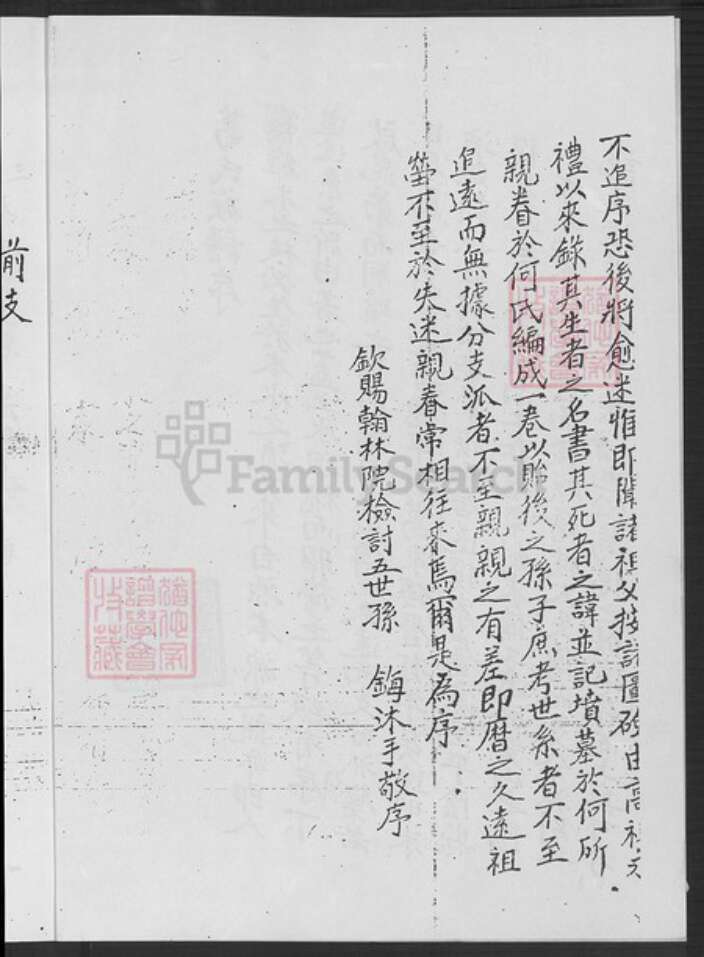 不追序恐後將愈迷惟即聞諸祖父按諸圖由高祖
禮以來錄其生者之名書其死者之諱並記墳墓於何所
親眷於何氏編成一卷以貽後之孫子庶考世系者不至
追遠而無據分支派者不至親親之有差即曆之久遠祖
塋不至於失迷親眷常相往來焉爾是為序
欽賜翰林院檢討五世孫 鋂沐手敬序
前支
FamilySearch